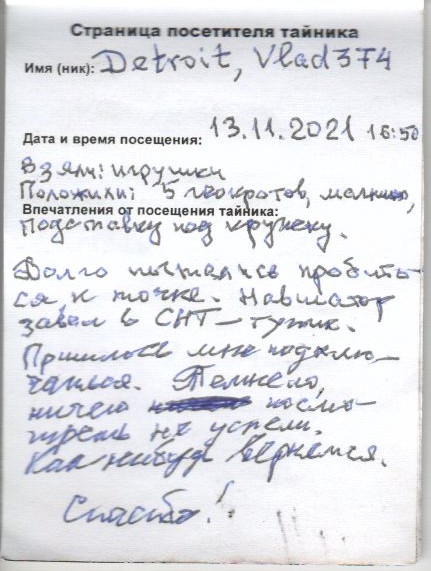 Страница посетителя тайника
Имя (ник): Detroit, Vlad374
Дата и время посещения: 13.11.2021 16:50
Взяли: игрушки
Положили: 5 геокротов,
Впечатления от посещения тайника:
Подставку под кружку.
Долго пытались пробить-
ся к точке. Навигатор
завел в СНТ – тупик.
Пришлось мне подклю-
чаться. Темнело,
ничего посмо-
треть не успели.
Как нибудь вернемся.
Спасибо!